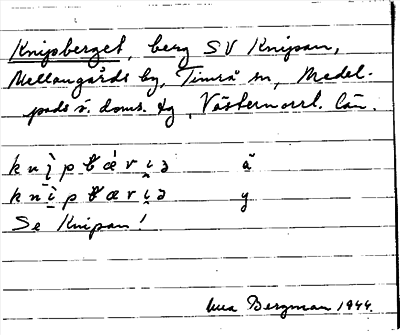 Knipsberget, berg SV Knipan,
Mellangårds by, Timrå sn, Medel-
pads ö. doms. tg, Västernorrl. län.
k n ị̀ p b æ̀ r i̯ ə ä
k n ị̀ p b æ r i̯ ə y
Se Knipan!
Bergman 1944.